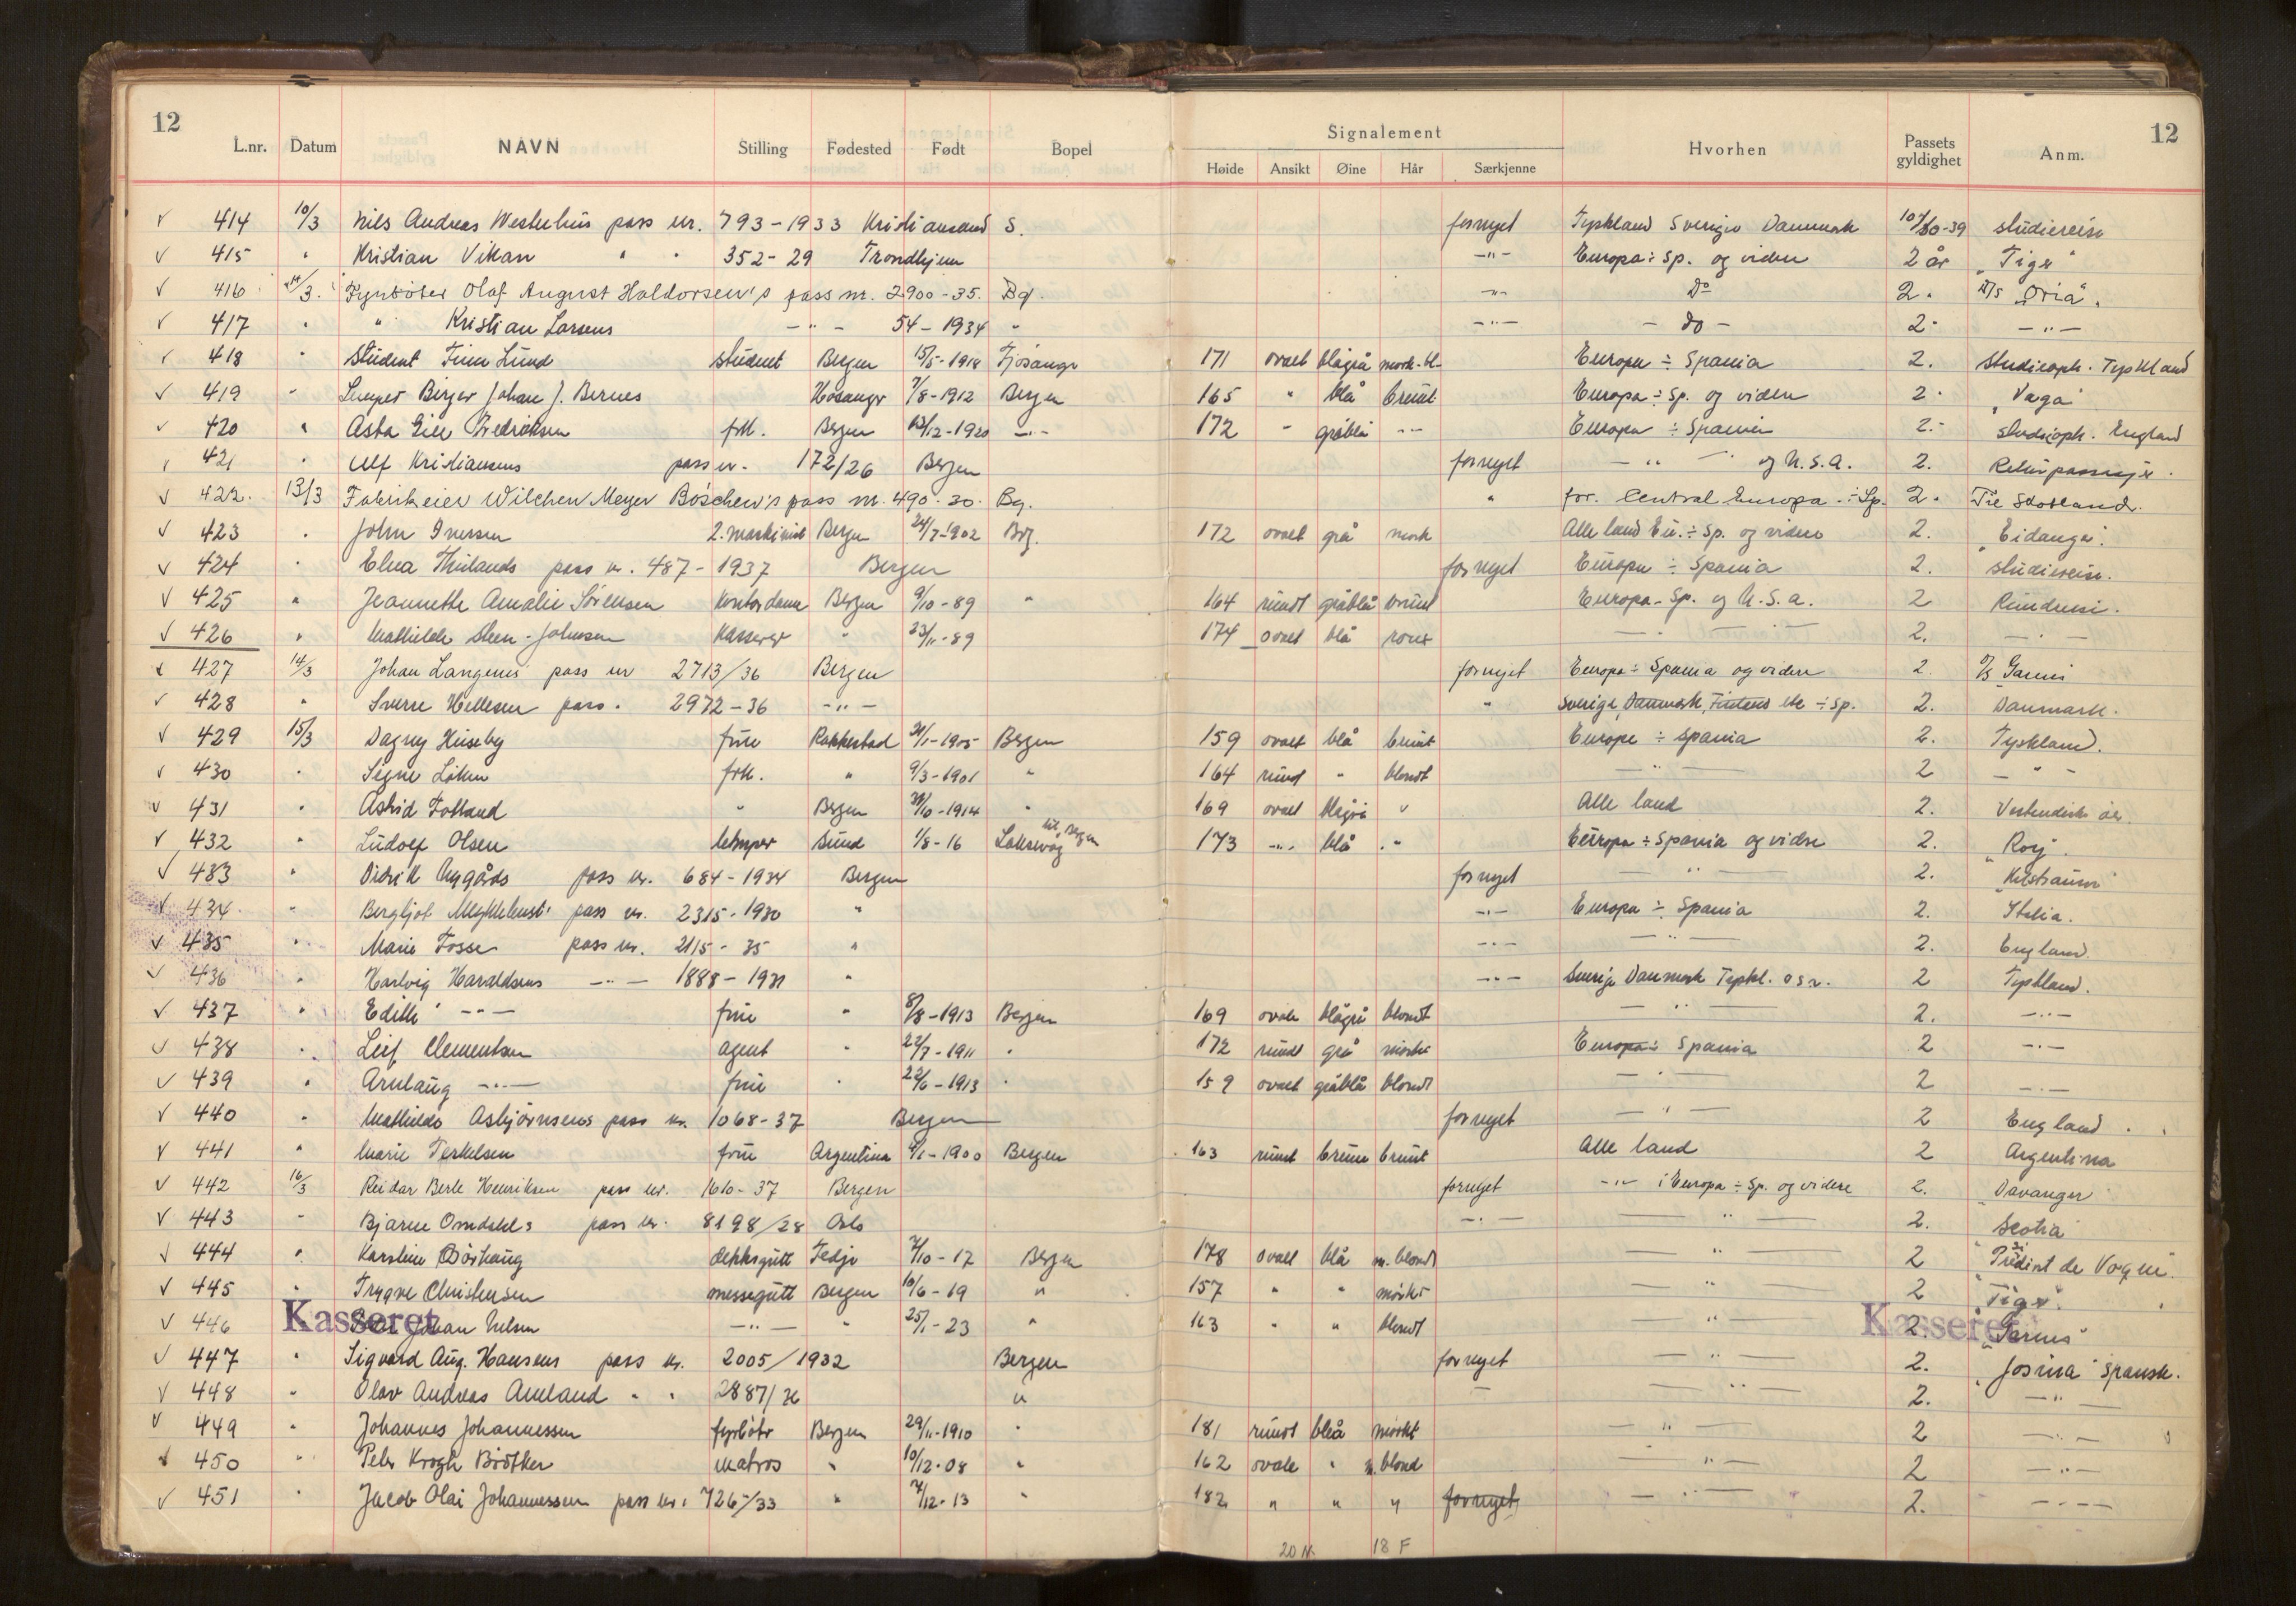 12
L.nr. Datum NAVN Stilling Fødested Født Bopel Signalement Høide Ansikt Øine Hår Særkjenne Hvorhen Passets gyldighet Anm.
12
414 10/3 Nils Andreas pass nr. 793-1933 Kristiansand S. fornyet Tyskland Sverige Danmark studiereise
415 " Kristian Vikan " " 352-29 Trondhjem -"- Europa ÷ Sp. og videre 2 år "Tiger"
416 11/3. Fyrbøter Olaf August Haldorsen's pass nr. 2900-35. Bg. -"- Do 2. D/S "Oria".
417 " " Kristian Larsens -"- 54-1934 " -"- - do - 2 -"-
418 " Student Finn Lund student Bergen 15/5-1918 Fjøsanger 171 ovalt blågrå mørk.bl. Europa ÷ Spania 2. studieoph. Tyskland
419 " Lemper Birger Johan J. Bernes Hosanger 7/8-1912 Bergen 165 " blå brunt Europa ÷ Sp. og videre 2 "Vaga"
420 " Asta Fredriksen frk. Bergen /12-1920 -"- 172 " gråblå -"- Europa ÷ Spania 2. studieoph. England
421 " Ulf Kristiansens pass nr. 172/26 Bergen fornyet -"- og U.S.A. 2. Returpassasje.
422. 13/3 Fabrikeier Wilchen Meyer Böschen's pass nr. 490-30. Bg. " for. Central Europa ÷ Sp. 2. Til Skotland.
423 " John Iversen 2. maskinist Bergen 24/7-1902 Brg. 172 ovalt grå mørk Alle land Eu. ÷ Sp. og videre 2. "Eidanger".
424 " Elna pass nr. 487-1937 Bergen fornyet Europa ÷ Spania 2. studiereise.
425 " Jeannette Amalie Sørensen Kontordame Bergen 9/10-89 " 164 rundt gråblå brunt Europa ÷ Sp. og U.S.A. 2 Rundreise.
426 " Mathilde Steen-Johnsen Kasserer " 23/11-89 174 ovalt blå -"- 2. -"-
427 14/3 Johan pass nr 2713/36 Bergen fornyet Europa ÷ Spania og videre 2. D/S
428 " Sverre Hellesen pass. 2972-36 -"- " Sverige, Danmark, etc ÷ Sp. 2. Danmark.
429 15/3 Dagny Huseby frue Rakkestad /1-1905 Bergen 159 ovalt blå brunt Europa ÷ Spania 2. Tyskland.
430 " Signe Løken frk. " 9/3-1901 " 164 rund " blondt -"- 2 -"-
431 " Astrid Totland " Bergen /10-1914 " 169 ovalt blågrå " Alle land 2.
432 " Ludolf Olsen lemper Sund 1/8-16 Laksevåg til Bergen 173 -"- blå -"- Europa ÷ Spania og videre 2. "Roy".
433 " Didrik Aagårds pass nr. 684-1934 Bergen fornyet -"- 2.
434 " Bergljot Myklebust' pass nr. 2315-1930 " -"- Europa ÷ Spania 2. Italia.
435 " Marie Fosse pass nr. 2115-35 " -"- -"- 2. England.
436 " Hartvig Haraldsens -"- 1888-1931 " -"- Sverige Danmark Tyskl. o s v. 2 Tyskland.
437 " Edith -"- frue " 8/8-1913 Bergen 169 ovalt blågrå blondt -"- 2. -"-
438 " Leif Clementsen agent " 22/7-1911 " 172 rundt grå mørkt Europa ÷ Spania 2 -"-
439 " Arnlaug -"- frue " 22/6-1913 " 159 ovalt gråblå blondt -"- 2 -"-
440 " Mathilde Asbjørnsens pass nr. 1068-37 Bergen fornyet -"- 2 England.
441 " Marie Terkelsen frue Argentina 9/1-1900 Bergen 163 rundt brune brunt Alle land 2 Argentina
442 16/3 Reidar Berle Henriksen pass nr. 1610-37 Bergen fornyet -"- i Europa ÷ Sp. og videre 2. "Davanger"
443 " Bjarne Omdahl's pass nr. 8198/28 Oslo -"- -"- 2. "Scotia"
444 " Karsten dekksgutt Fedje 7/10-17 Bergen 178 ovalt blå m. blondt -"- 2
445 " Trygve Christensen messegutt Bergen 10/6-19 " 157 " " mørkt -"- 2 "Tiger".
446 " Johan Nelsen -"- " 25/1-23 " 163 " " blondt -"- 2.
Kasseret
Kasseret
447 " Sigvard Aug. Hansens pass nr. 2005/1932 Bergen fornyet -"- 2. "Josina" spansk.
448 " Olav Andreas Amland " " 2887/36 " - -"- 2. -"-
449 " Johannes Johannessen fyrbøter Bergen 29/11-1910 " 181 rundt blå mørkt -"- 2 -"-
450 " Peter Krogh Brøtker matros " 10/12-08 " 162 ovale " m. blond -"- 2 -"-
451 " Jacob Olai Johannessen pass nr. 726/33 " 7/12-13 " 182 " " " fornyet -"- 2. -"-
20 M. 18 F